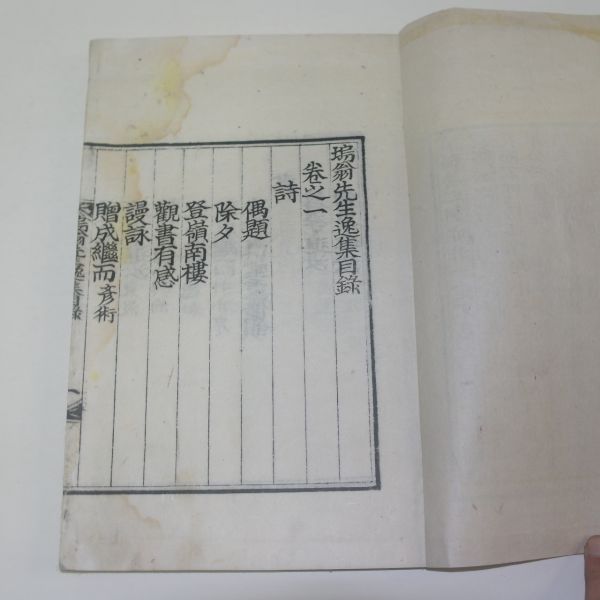 塢翁先生逸集目錄
卷之一
詩
偶題
除夕
登嶺南樓
觀書有感
謾詠
贈成繼而彥術
塢翁先生逸集目錄
一